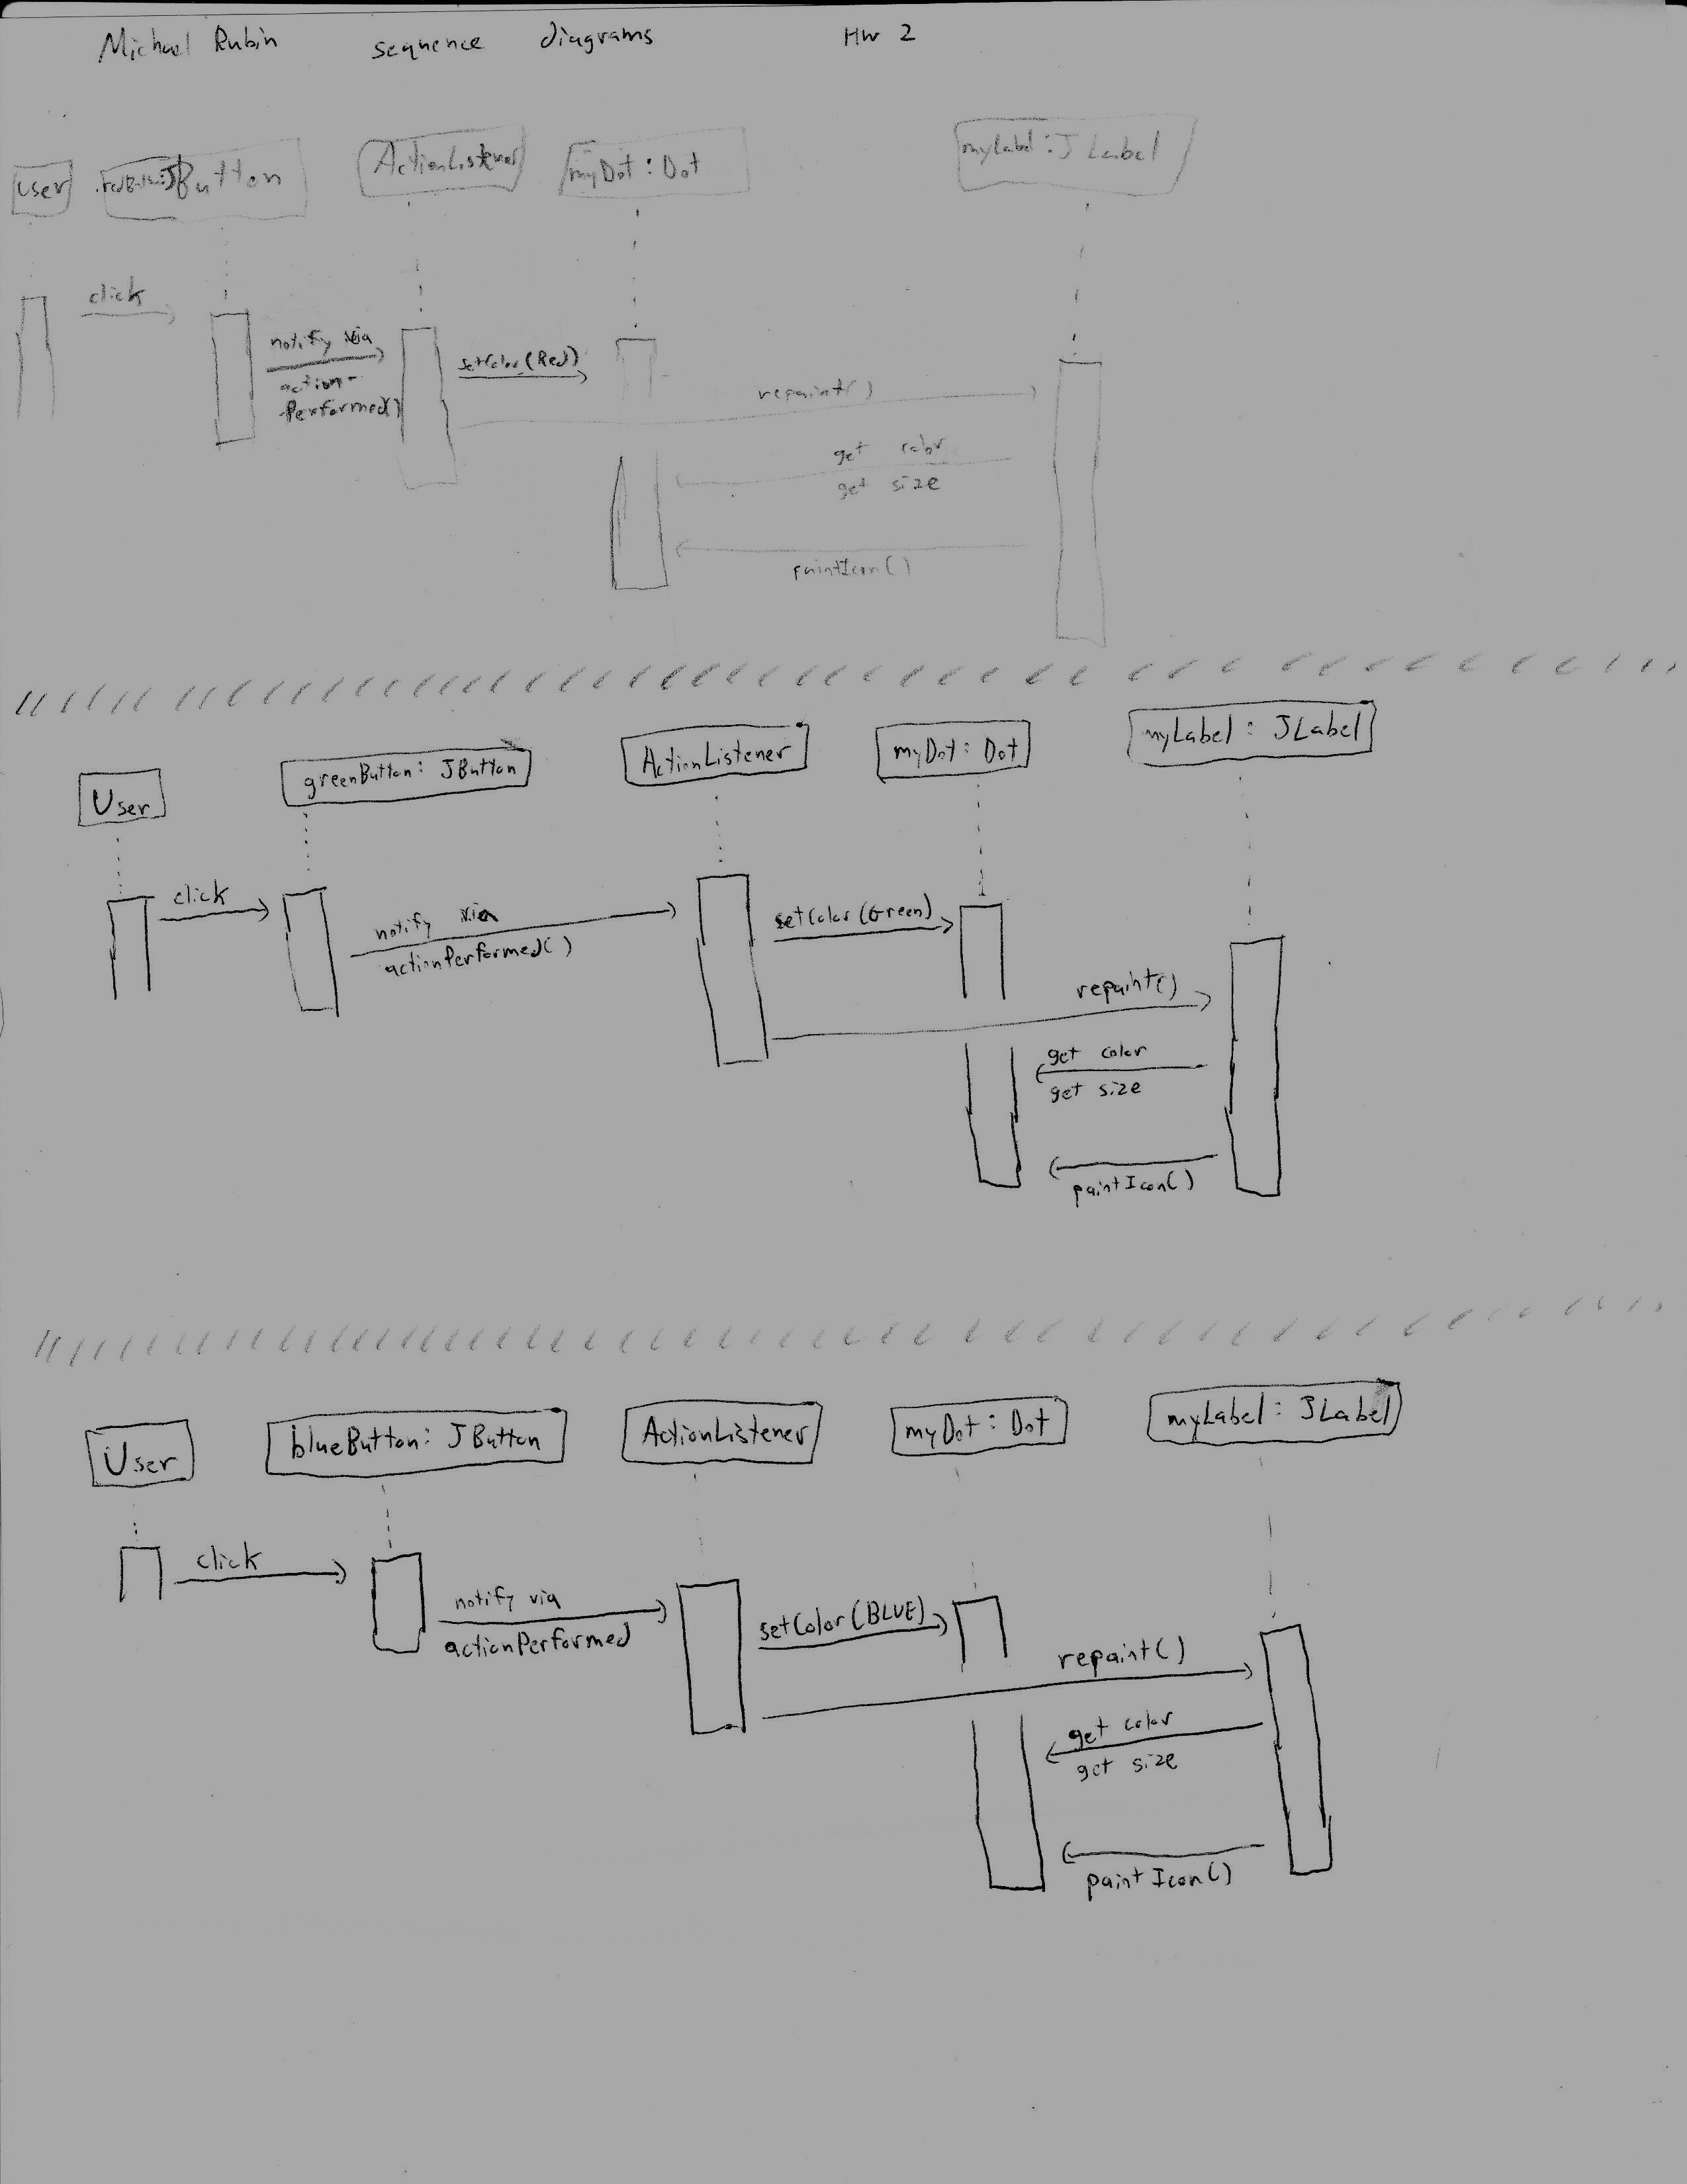 Michael Rubin sequence diagrams HW 2
User redButton:JButton ActionListener myDot:Dot myLabel:JLabel
click
notify via
action-
Performed()
setColor(Red)
repaint()
get color
get size
paintIcon()
User greenButton: JButton ActionListener myDot: Dot myLabel: JLabel
click
notify via
actionPerformed()
setColor(Green)
repaint()
get color
get size
paintIcon()
User blueButton: JButton ActionListener myDot: Dot myLabel: JLabel
click
notify via
actionPerformed
setColor(BLUE)
repaint()
get color
get size
paintIcon()